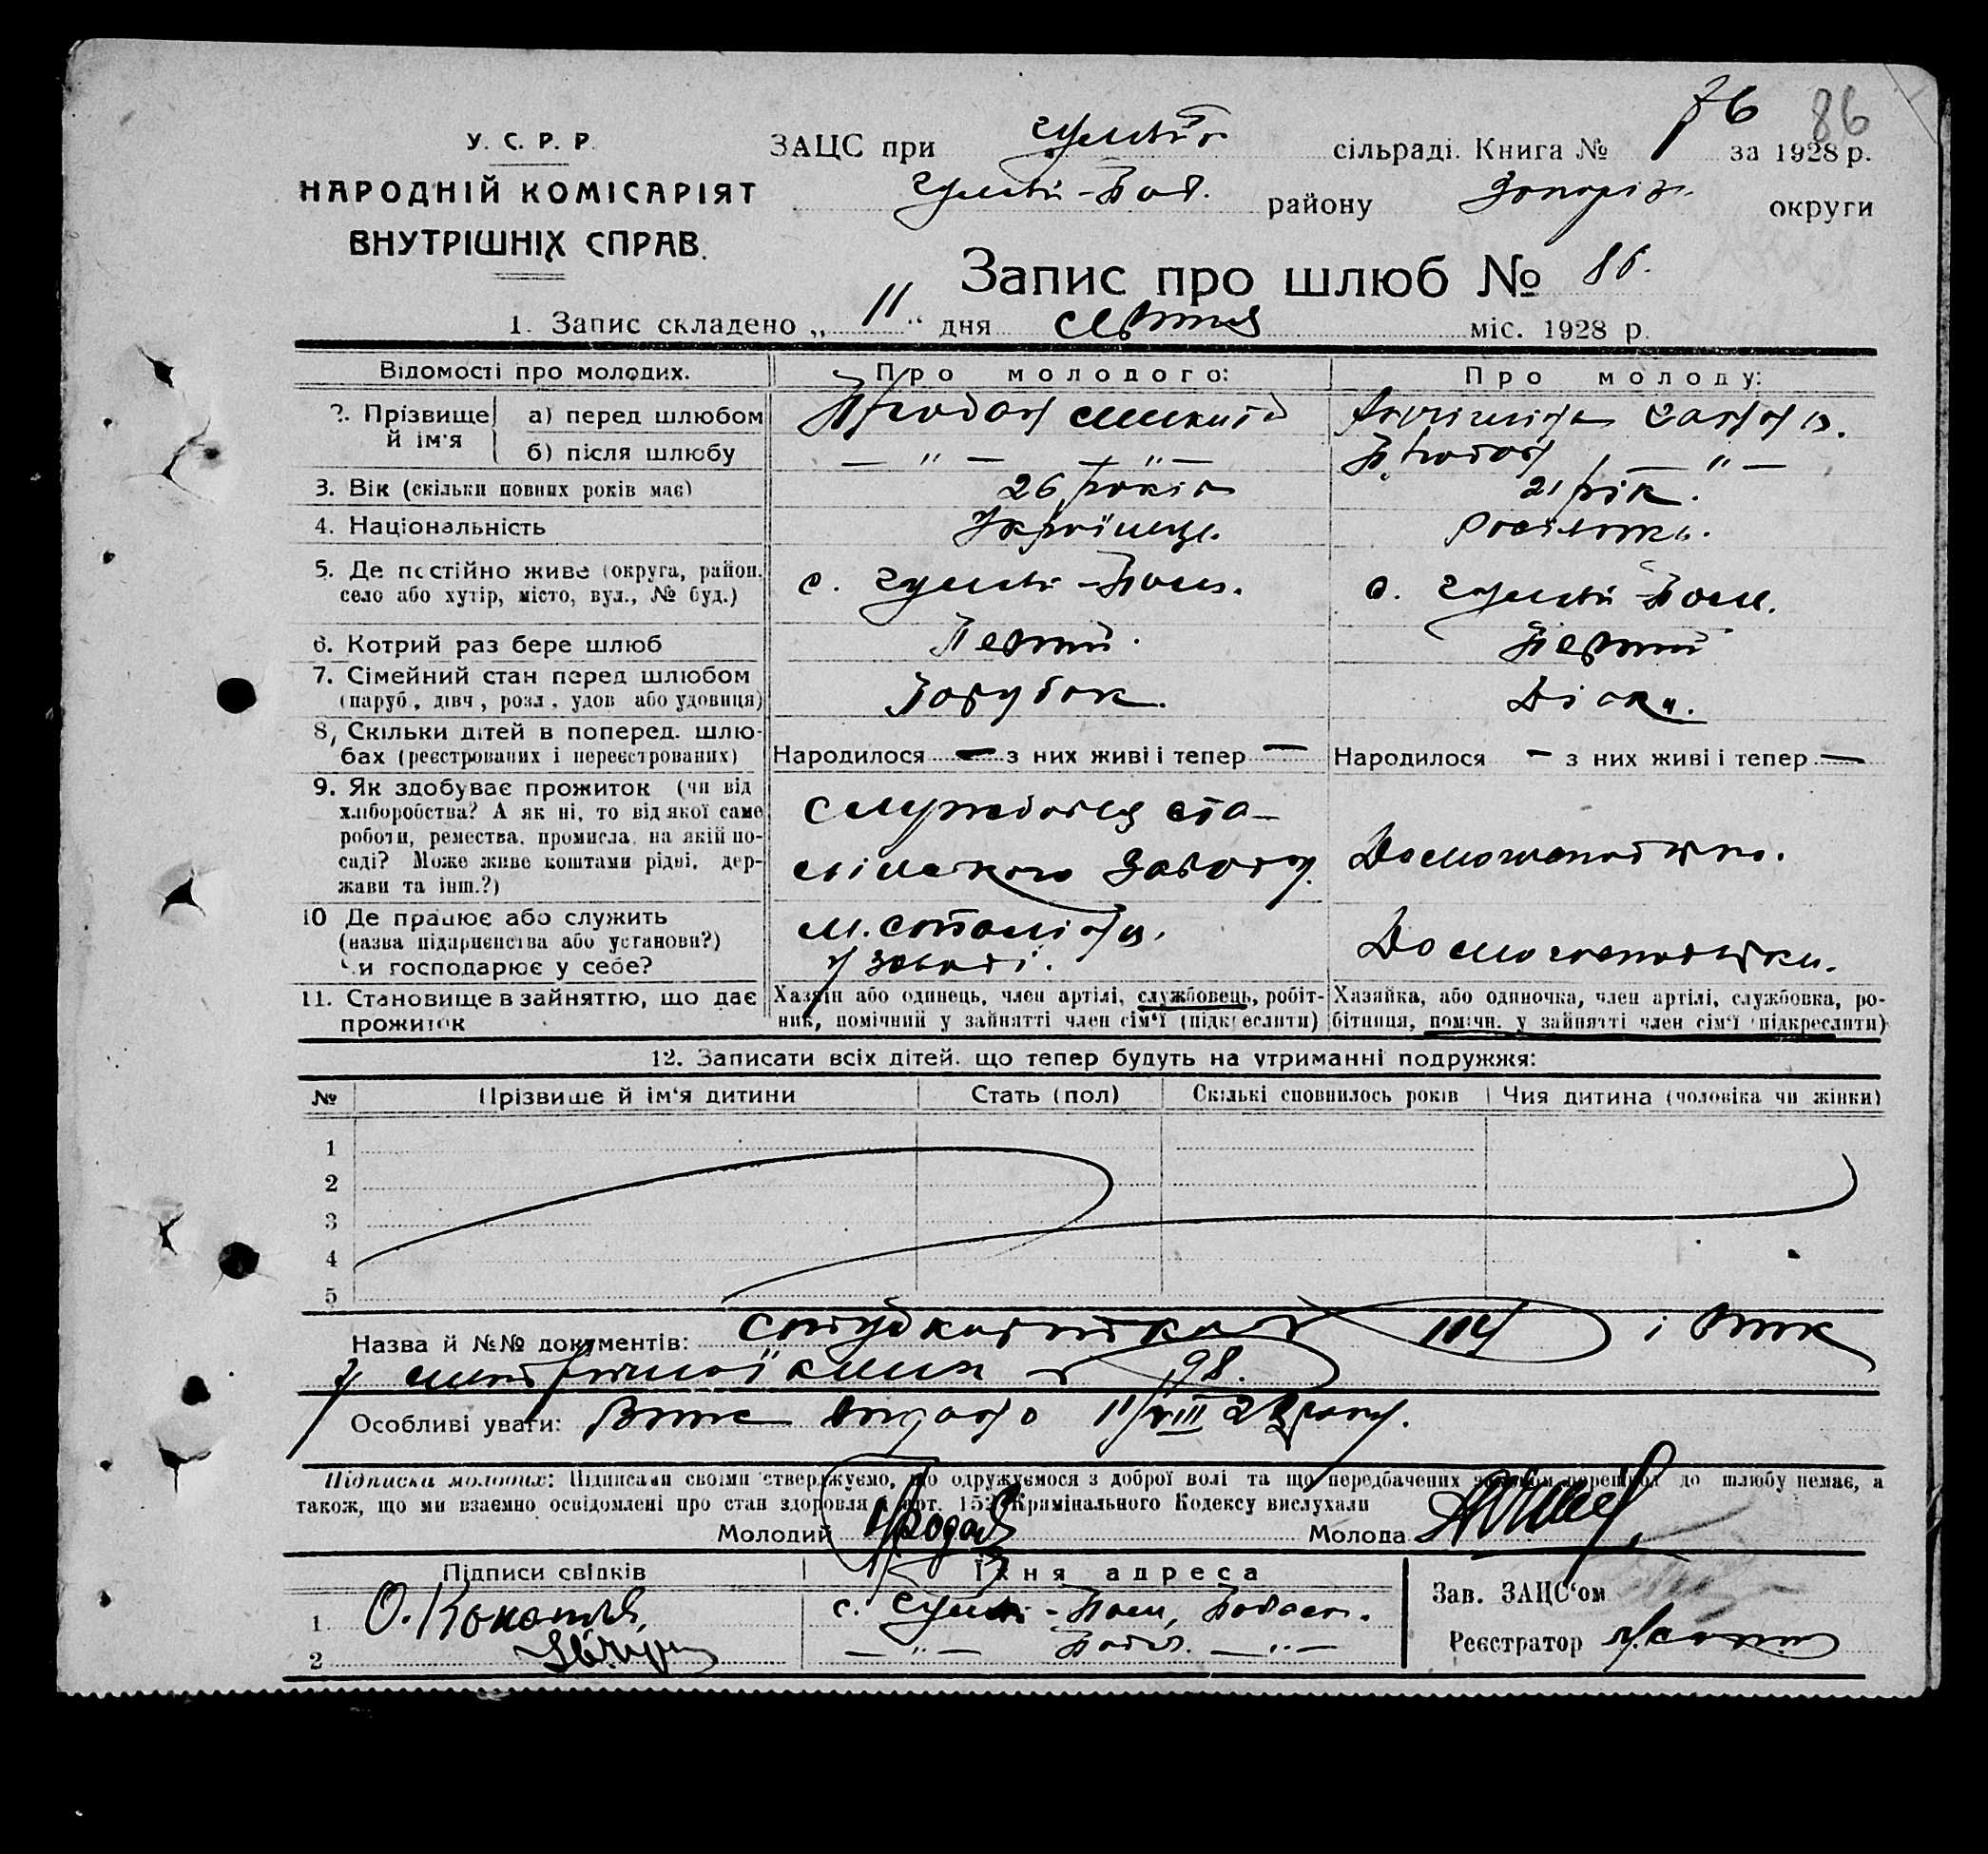 76 86
У. С. Р. Р.
НАРОДНІЙ КОМІСАРІЯТ
ВНУТРІШНІХ СПРАВ.
ЗАЦС при сільраді. Книга № 1 за 1928 р.
Гуляй-Пол. району Запоріз. округи
Запис про шлюб № 86.
1. Запис складено „ 11 “ дня серпня міс. 1928 р.
Відомості про молодих. Про молодого: Про молоду:
2. Прізвище й ім'я
а) перед шлюбом Микита
б) після шлюбу — " — — " — — " —
3. Вік (скільки повних років має) 26 років 21 рік.
4. Національність Українець. Росіянка.
5. Де постійно живе (округа, район, село або хутір, місто, вул., № буд.) с. Гуляй-Поле. с. Гуляй-Поле.
6. Котрий раз бере шлюб Перший. Перший
7. Сімейний стан перед шлюбом (паруб., дівч., розл., удов. або удовиця) Парубок. Дівка.
8, Скільки дітей в поперед. шлюбах (реєстрованих і нереєстрованих) Народилося — з них живі і тепер — Народилося — з них живі і тепер —
9. Як здобуває прожиток (чи від хліборобства? А як ні, то від якої саме роботи, ремества, промисла, на якій посаді? Може живе коштами рідні, держави та інш.?)
Службовець ста-
лінського заводу. Домогосподарка.
10 Де працює або служить (назва підприємства або установи?) Чи господарює у себе?
м. Сталіно,
у заводі. Домогосподарка.
11. Становище в зайняттю, що дає прожиток
Хазяїн або одинець, член артілі, службовець, робітник, помічний у зайнятті член сім'ї (підкреслити)
Хазяйка, або одиночка, член артілі, службовка, робітниця, помічн. у зайнятті член сім'ї (підкреслити)
12. Записати всіх дітей, що тепер будуть на утриманні подружжя:
№ Прізвище й ім'я дитини Стать (пол) Скількі сповнилось років Чия дитина (чоловіка чи жінки)
1
2
3
4
5
Назва й №№ документів: і витяг
з метричної книги 98.
Особливі уваги: Витяг видано 11/VIII 28 року.
Підписка молодих: Підписами своїми стверджуємо, що одружуємося з доброї волі та що передбачених законом перешкод до шлюбу немає, а
також, що ми взаємно освідомлені про стан здоровля і арт. 152 Крамінального Кодексу вислухали
Молодий Молода
Підписи свідків Їхня адреса Зав. ЗАЦС'ом
1 с. Гуляй-Поле,
2 — " — — " — Реєстратор